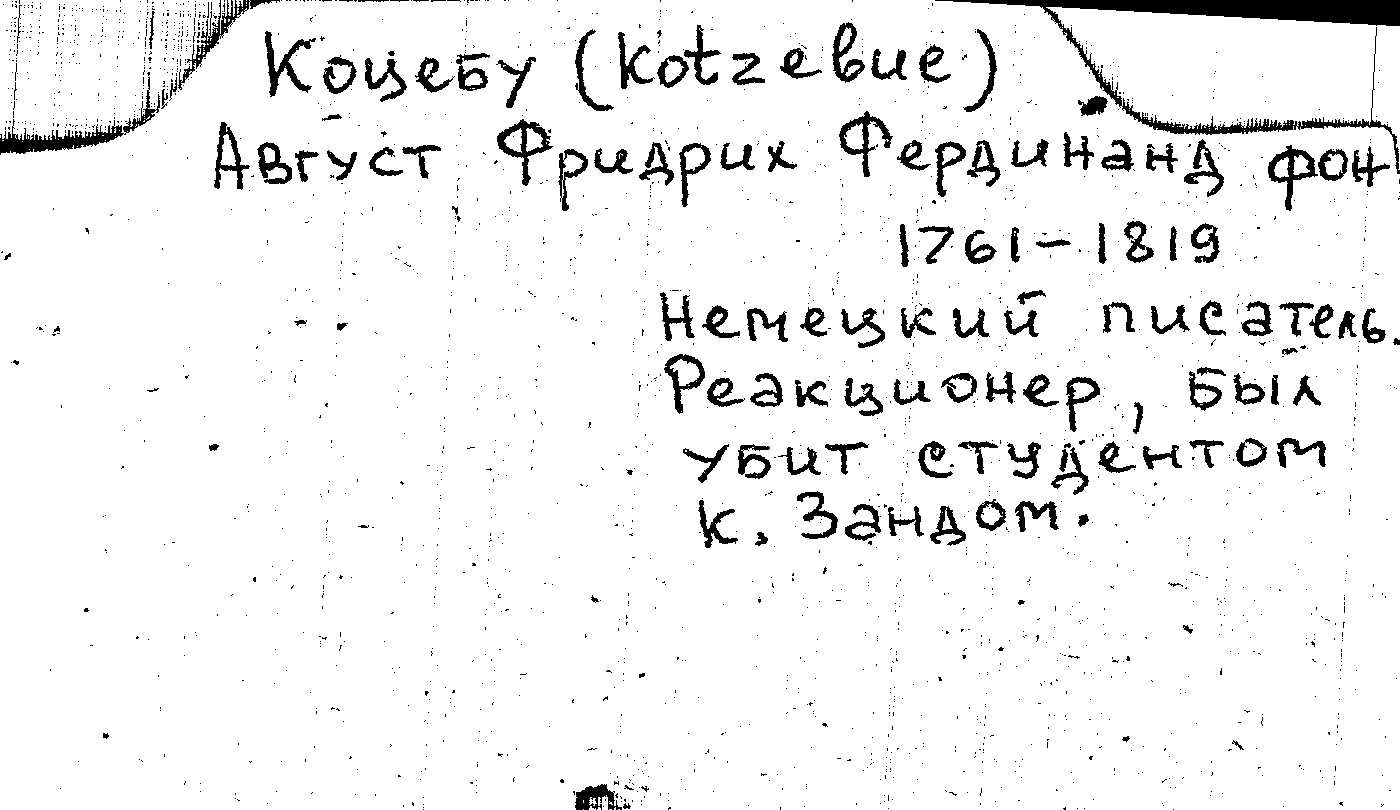 Коцебу (Kotzebue)
Август Фридрих Фердинанд фон
1761-1819
Немецкий писатель.
Реакционер, был
убит студентом
К. Зандом.